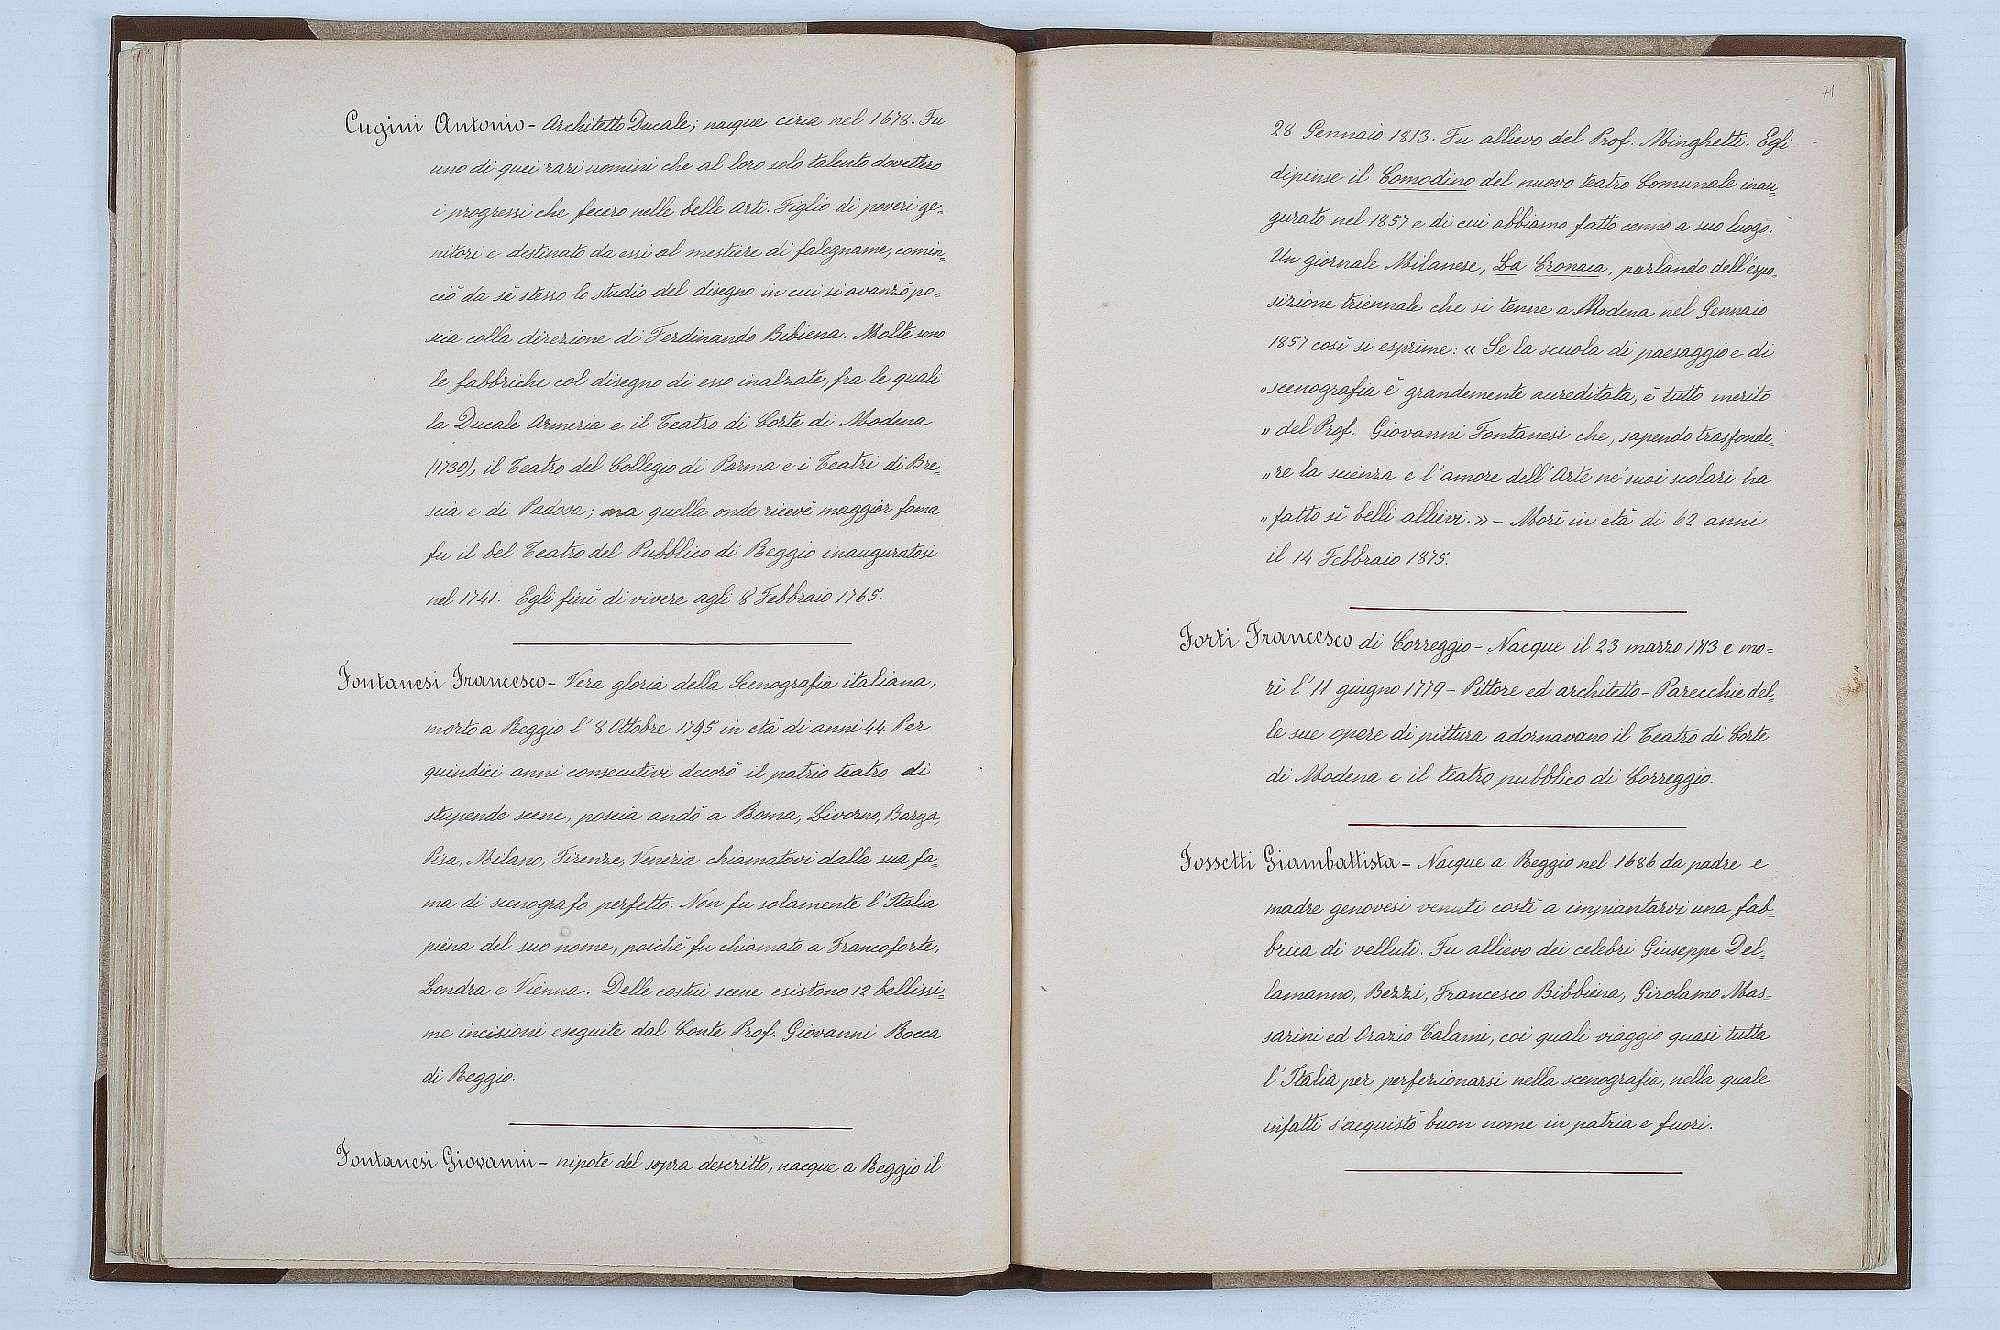 Cugini Antonio - Architetto Ducale; nacque circa nel 1678. Fu
uno di quei rari uomini che al loro solo talento dovettero
i progressi che fecero nelle belle Arti. Figlio di poveri ge=
nitori e destinato da essi al mestiere di falegname, comin=
ciò da sè stesso lo studio del disegno in cui si avanzò po=
scia colla direzione di Ferdinando Bibiena. Molte sono
le fabbriche col disegno di esso inalzate, fra le quali
la Ducale Armeria e il Teatro di Corte di Modena
(1730), il Teatro del Collegio di Parma e i Teatri di Bre=
scia e di Padova; ma quello onde ricevè maggior fama
fu il bel Teatro del Pubblico di Reggio inauguratosi
nel 1741. Egli finì di vivere agli 8 Febbraio 1765.
Fontanesi Francesco - Vera gloria della Scenografia italiana,
morto a Reggio l' 8 Ottobre 1795 in età di anni 44. Per
quindici anni consecutivi decorò il patrio teatro di
stupende scene, poscia andò a Roma, Livorno, Barga,
Pisa, Milano, Firenze, Venezia chiamatovi dalla sua fa=
ma di scenografo perfetto. Non fu solamente l'Italia
piena del suo nome, poichè fu chiamato a Francoforte,
Londra e Vienna. Delle costui scene esistono 12 bellissi=
me incisioni eseguite dal Conte Prof. Giovanni Rocca
di Reggio.
Fontanesi Giovanni - nipote del sopra descritto, nacque a Reggio il
71
28 Gennaio 1813. Fu allievo del Prof. Minghetti. Egli
dipinse il Comodino del nuovo teatro Comunale inau=
gurato nel 1857 e di cui abbiamo fatto cenno a suo luogo.
Un giornale Milanese, La Cronaca, parlando dell'espo=
sizione triennale che si tenne a Modena nel Gennaio
1857 così si esprime: « Se la scuola di paesaggio e di
„ scenografia è grandemente accreditata, è tutto merito
„ del Prof. Giovanni Fontanesi che, sapendo trasfonde=
„ re la scienza e l'amore dell'Arte ne' suoi scolari ha
„ fatto sì belli allievi. » - Morì in età di 62 anni
il 14 Febbraio 1875.
Forti Francesco di Correggio - Nacque il 23 marzo 1713 e mo=
rì l' 11 giugno 1779 - Pittore ed architetto - Parecchie del=
le sue opere di pittura adornavano il Teatro di Corte
di Modena e il teatro pubblico di Correggio.
Fossetti Giambattista - Nacque a Reggio nel 1686 da padre e
madre genovesi venuti costì a impiantarvi una fab=
brica di velluti. Fu allievo dei celebri Giuseppe Del=
lamanno, Bezzi, Francesco Bibbiena, Girolamo Mas=
sarini ed Orazio Talami, coi quali viaggio quasi tutta
l'Italia per perfezionarsi nella scenografia, nella quale
infatti s'acquistò buon nome in patria e fuori.